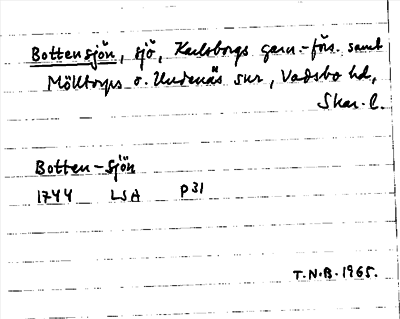 Bottensjön, sjö, Karlsborgs garn.-förs. samt
Mölltorps o. Undenäs snr, Vadsbo hd,
Skar. l.
Botten-sjön
1744 LSA P31
T.N.B. 1965.